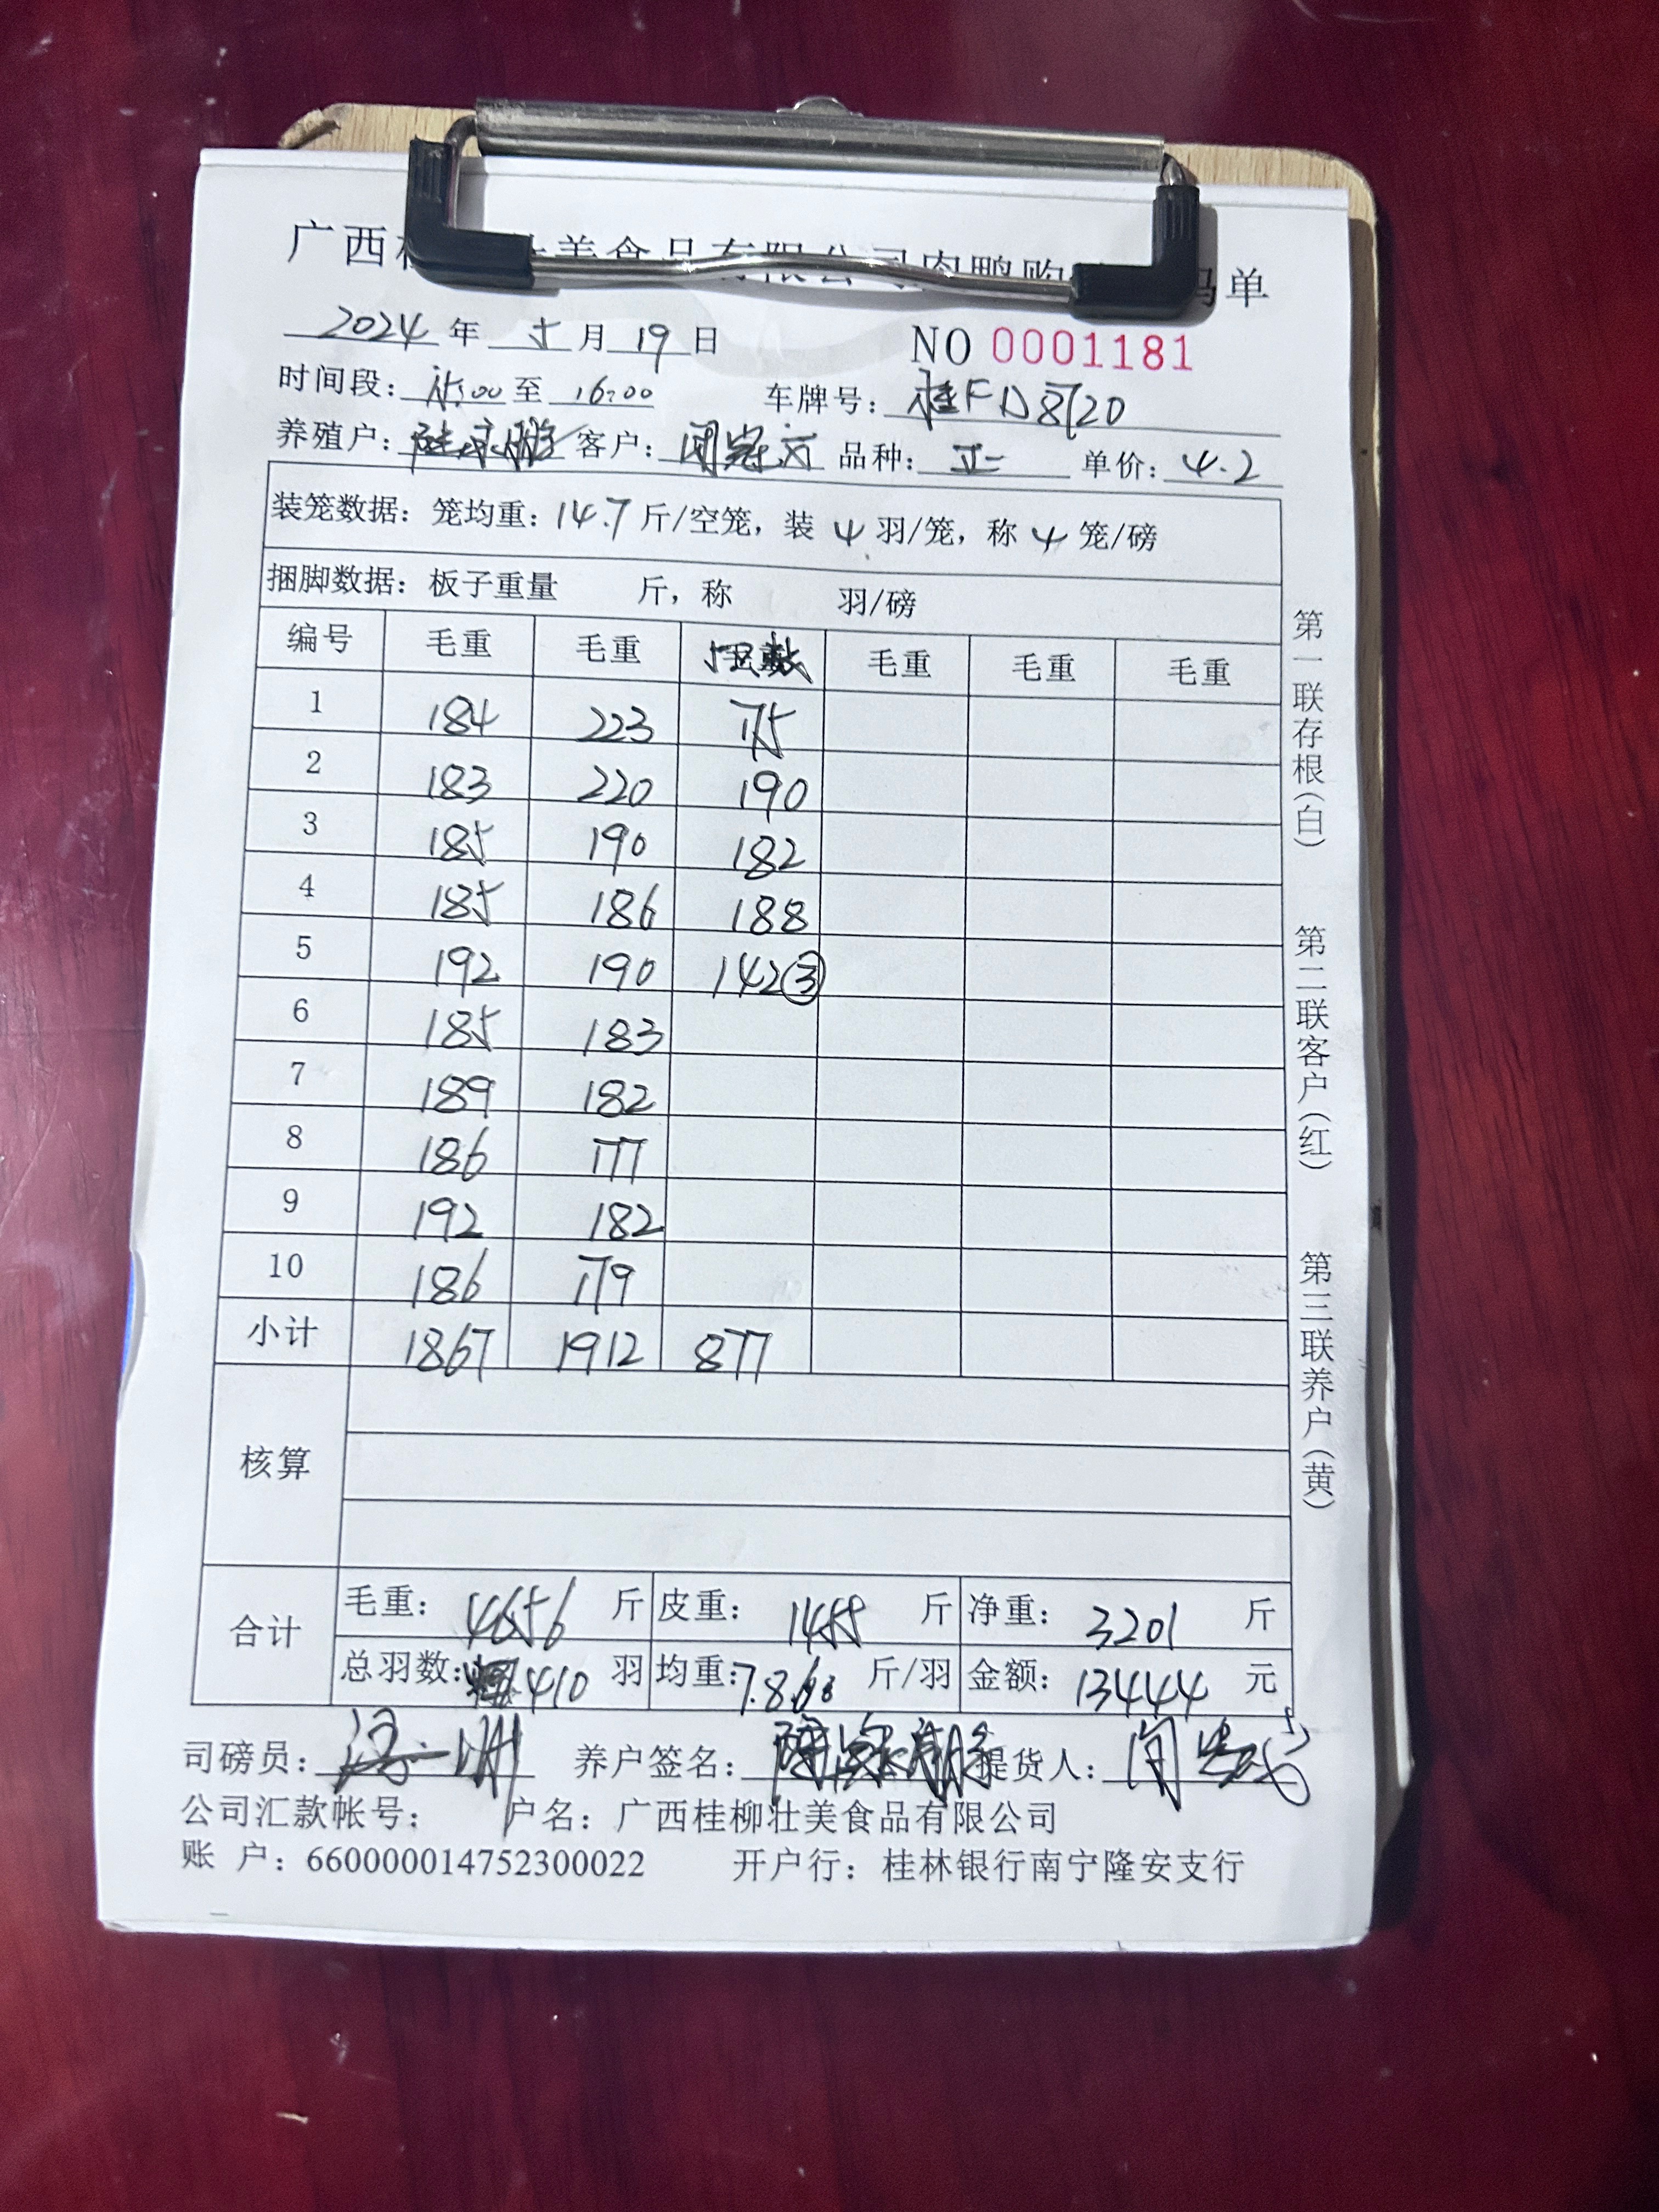 广西 美食品有限公司肉鸭购 码单
2024 年 5 月 19 日 NO 0001181
时间段: 15:00 至 16:00 车牌号: 桂FD8720
养殖户: 客户: 品种: 正一 单价: 4.2
装笼数据: 笼均重: 14.7 斤/空笼, 装 4 羽/笼, 称 4 笼/磅
捆脚数据: 板子重量 斤, 称 羽/磅
编号 毛重 毛重 毛重 毛重 毛重
1 184 223 175
2 183 220 190
3 185 190 182
4 185 186 188
5 192 190 142③
6 185 183
7 189 182
8 186 177
9 192 182
10 186 179
小计 1867 1912 877
核算
合计 毛重: 4656 斤 皮重: 1455 斤 净重: 3201 斤
总羽数: 410 羽 均重: 斤/羽 金额: 13444 元
司磅员: 养户签名: 提货人:
公司汇款帐号: 户名: 广西桂柳壮美食品有限公司
账 户: 660000014752300022 开户行: 桂林银行南宁隆安支行
第一联存根(白)
第二联客户(红)
第三联养户(黄)